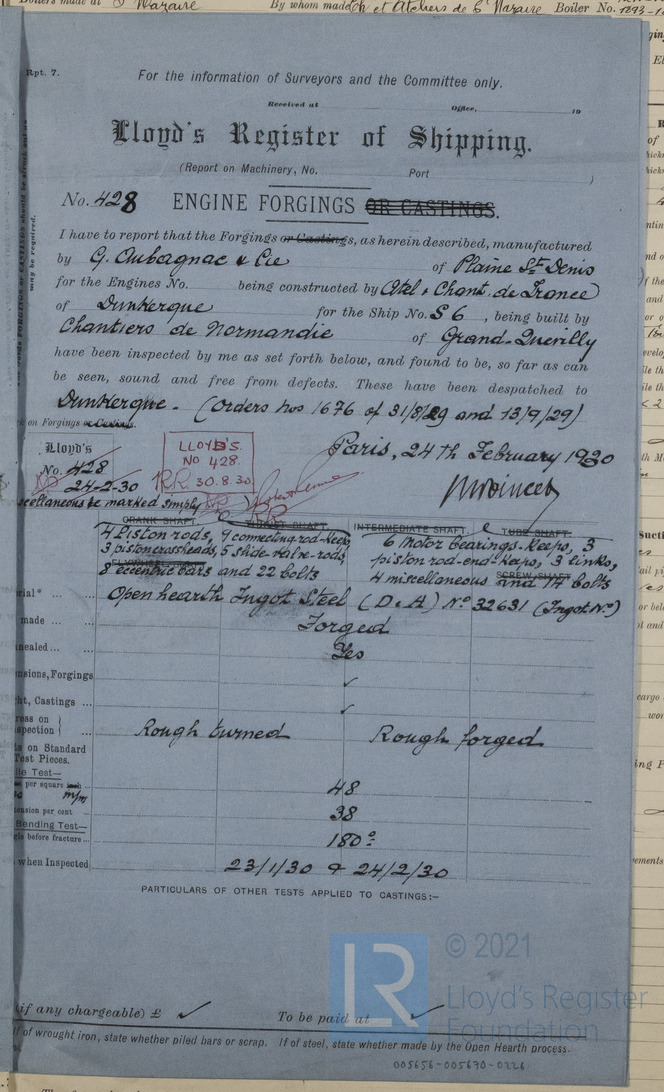 Boilers made at St Nazaire By whom made Ch et Ateliers de St Nazaire Boiler No. 1293-
Rpt. 7.
For the information of Surveyors and the Committee only.
Received at Office, 19
Lloyd's Register of Shipping.
(Report on Machinery, No. Port )
No. 428 ENGINE FORGINGS OR CASTINGS.
I have to report that the Forgings or Castings, as herein described, manufactured
by G. Aubagnac & Cie of Plaine St Denis
for the Engines No. being constructed by Atel & Chant. de France
of Dunkerque for the Ship No. S 6, being built by
Chantiers de Normandie of Grand-Quevilly
have been inspected by me as set forth below, and found to be, so far as can
be seen, sound and free from defects. These have been despatched to
Dunkerque. (Orders nos 1676 of 31/8/29 and 13/9/29)
on Forgings or Castings.
Lloyd's
No. 428
24-2-30
LLOYD'S.
No 428.
RR 30.8.30
Paris, 24th February 1930
miscellaneous be marked simply
CRANK SHAFT. THRUST SHAFT. INTERMEDIATE SHAFT. TUBE SHAFT.
4 Piston rods, 4 connecting-rod-keeps, 6 Motor bearings-keeps, 3
3 piston crossheads, 5 slide-valve-rods, piston rod-end-keeps, 3 links,
8 eccentric bars and 22 bolts 4 miscellaneous and 14 bolts
SCREW SHAFT
rial* Open hearth Ingot Steel (D & A) No 32631 (Ingot No)
made Forged
nealed Yes
nsions, Forgings ✓
ht, Castings ✓
ress on
spection Rough turned Rough forged
ts on Standard
Test Pieces.
ile Test—
per square inch m/m 48
tension per cent 38
Bending Test—
gle before fracture 180°
when Inspected 23/1/30 & 24/2/30
PARTICULARS OF OTHER TESTS APPLIED TO CASTINGS:–
(if any chargeable) £ ✓ To be paid at ✓
If of wrought iron, state whether piled bars or scrap. If of steel, state whether made by the Open Hearth process.
LR
© 2021
Lloyd's Register
Foundation
005656-005670-0226